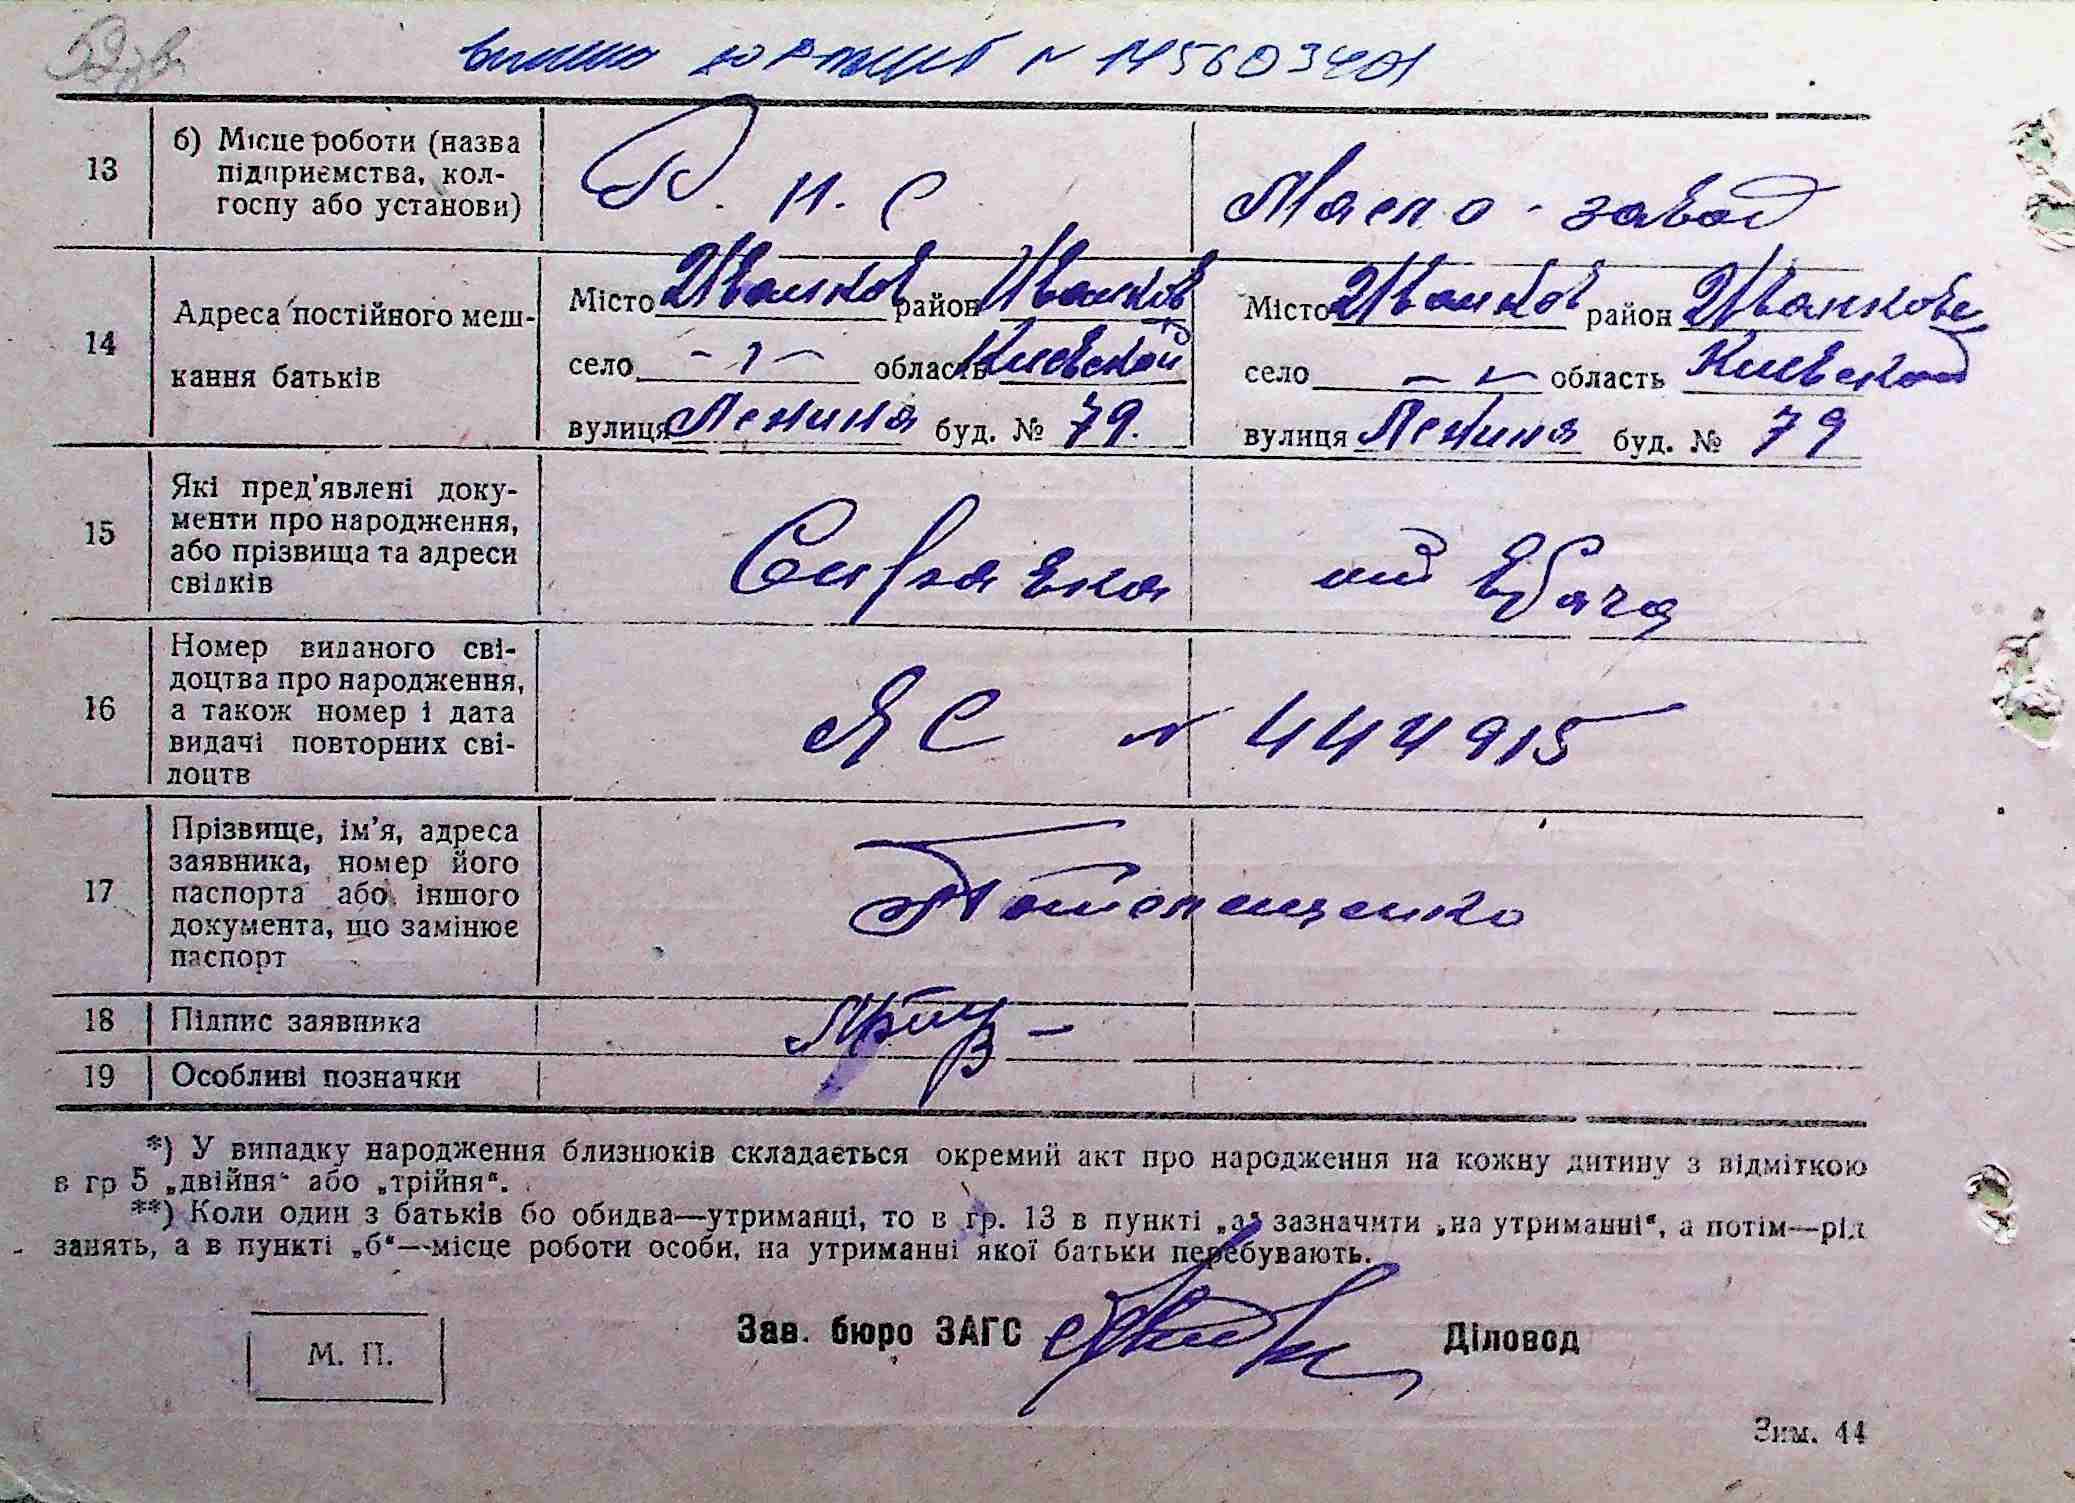 N 145603401
13 б) Місце роботи (назва підприємства, колгоспу або установи) Р. П. С Масло-завод
14 Адреса постійного мешкання батьків
Місто Иванков район Иванков Місто Иванков район Иванкове
село — область Киевской село — область Киевской
вулиця Ленина буд. № 79. вулиця Ленина буд. № 79
15 Які пред'явлені документи про народження, або прізвища та адреси свідків Справка от врача
16 Номер виданого свідоцтва про народження, а також номер і дата видачі повторних свідоцтв ЯС N 444915
17 Прізвище, ім'я, адреса заявника, номер його паспорта або іншого документа, що замінює паспорт
18 Підпис заявника
19 Особливі позначки
*) У випадку народження близнюків складається окремий акт про народження на кожну дитину з відміткою
в гр 5 „двійня“ або „трійня“.
**) Коли один з батьків бо обидва—утриманці, то в гр. 13 в пункті „а“ зазначити „на утриманні“, а потім—рід
занять, а в пункті „б“—місце роботи особи, на утриманні якої батьки перебувають.
Зав. бюро ЗАГС Діловод
М. П.
Зим. 44